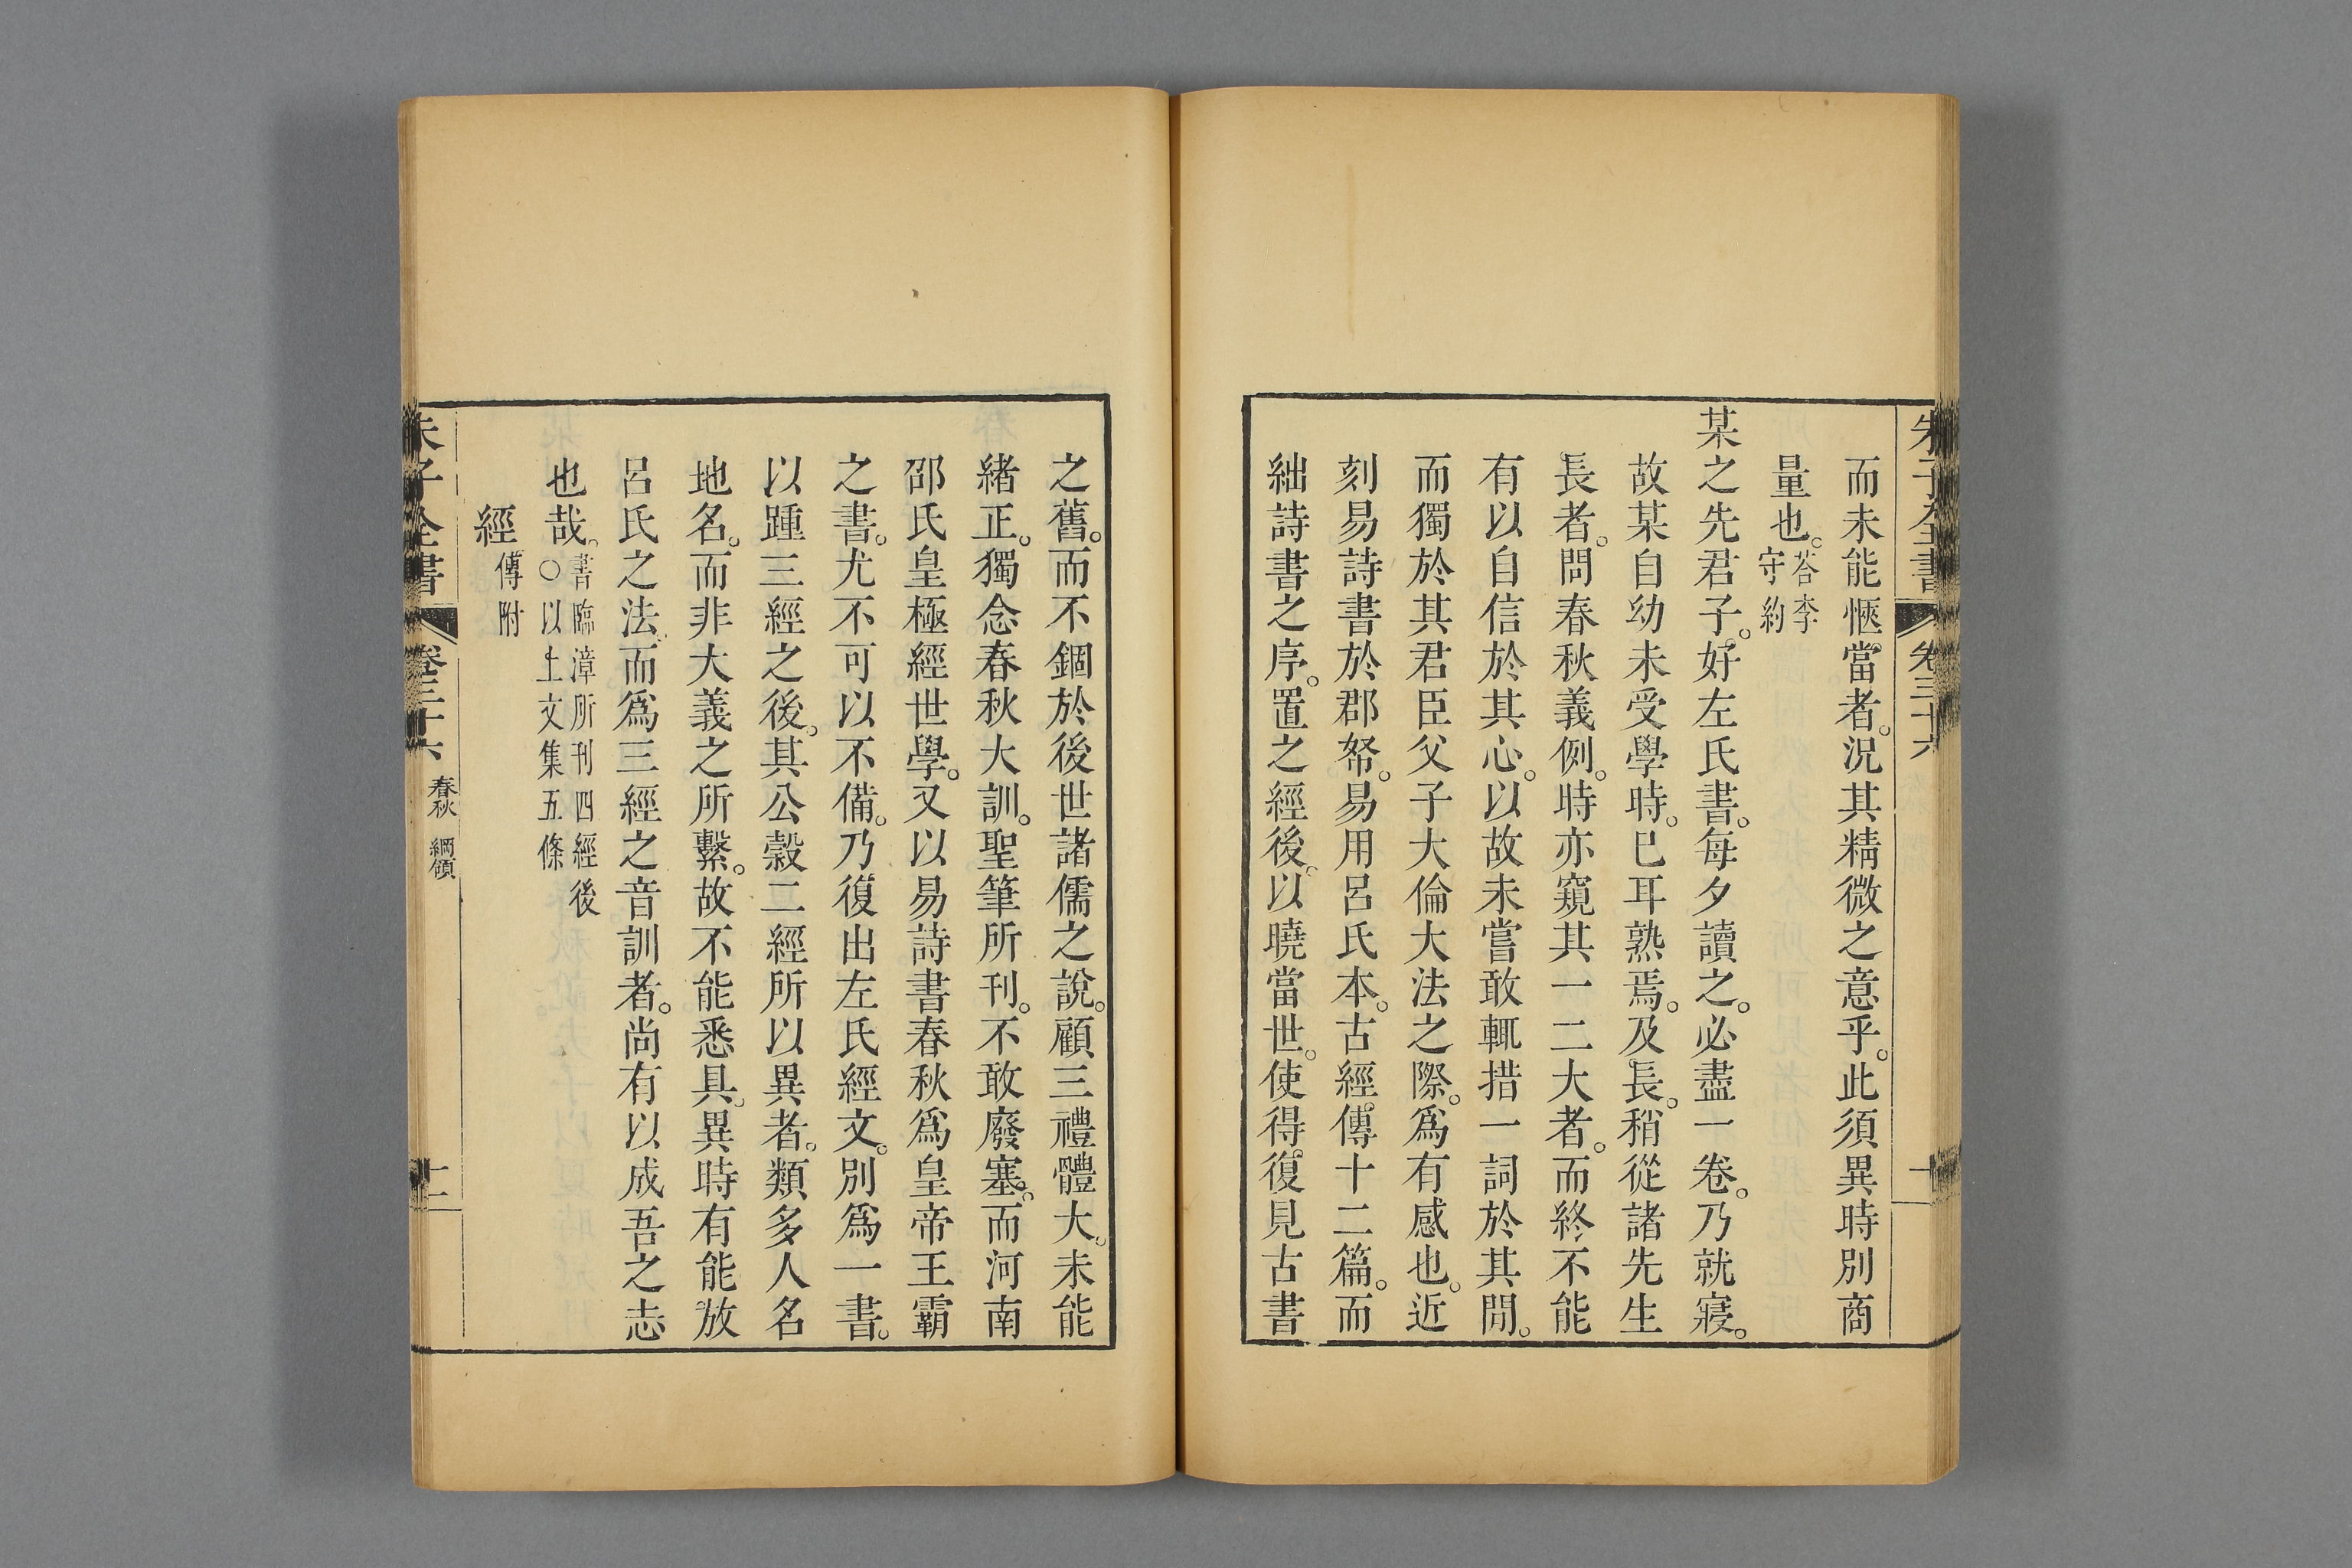 朱子全書 卷三十六 十
而未能愜當者。況其精微之意乎。此須異時別商
量也。答李守約
某之先君子。好左氏書。每夕讀之。必盡一卷。乃就寢。
故某自幼未受學時。已耳熟焉。及長。稍從諸先生
長者。問春秋義例。時亦窺其一二大者。而終不能
有以自信於其心。以故未嘗敢輒措一詞於其間。
而獨於其君臣父子大倫大法之際。爲有感也。近
刻易詩書於郡帑。易用呂氏本。古經傳十二篇。而
絀詩書之序。置之經後。以曉當世。使得復見古書
之舊。而不錮於後世諸儒之說。顧三禮體大。未能
緒正。獨念春秋大訓。聖筆所刊。不敢廢塞。而河南
邵氏皇極經世學。又以易詩書春秋爲皇帝王霸
之書。尤不可以不備。乃復出左氏經文。別爲一書。
以踵三經之後。其公穀二經所以異者。類多人名
地名。而非大義之所繫。故不能悉具。異時有能放
呂氏之法。而爲三經之音訓者。尚有以成吾之志
也哉。書臨漳所刊四經後○以上文集五條
經傳附
朱子全書 卷三十六 春秋 綱領 十一